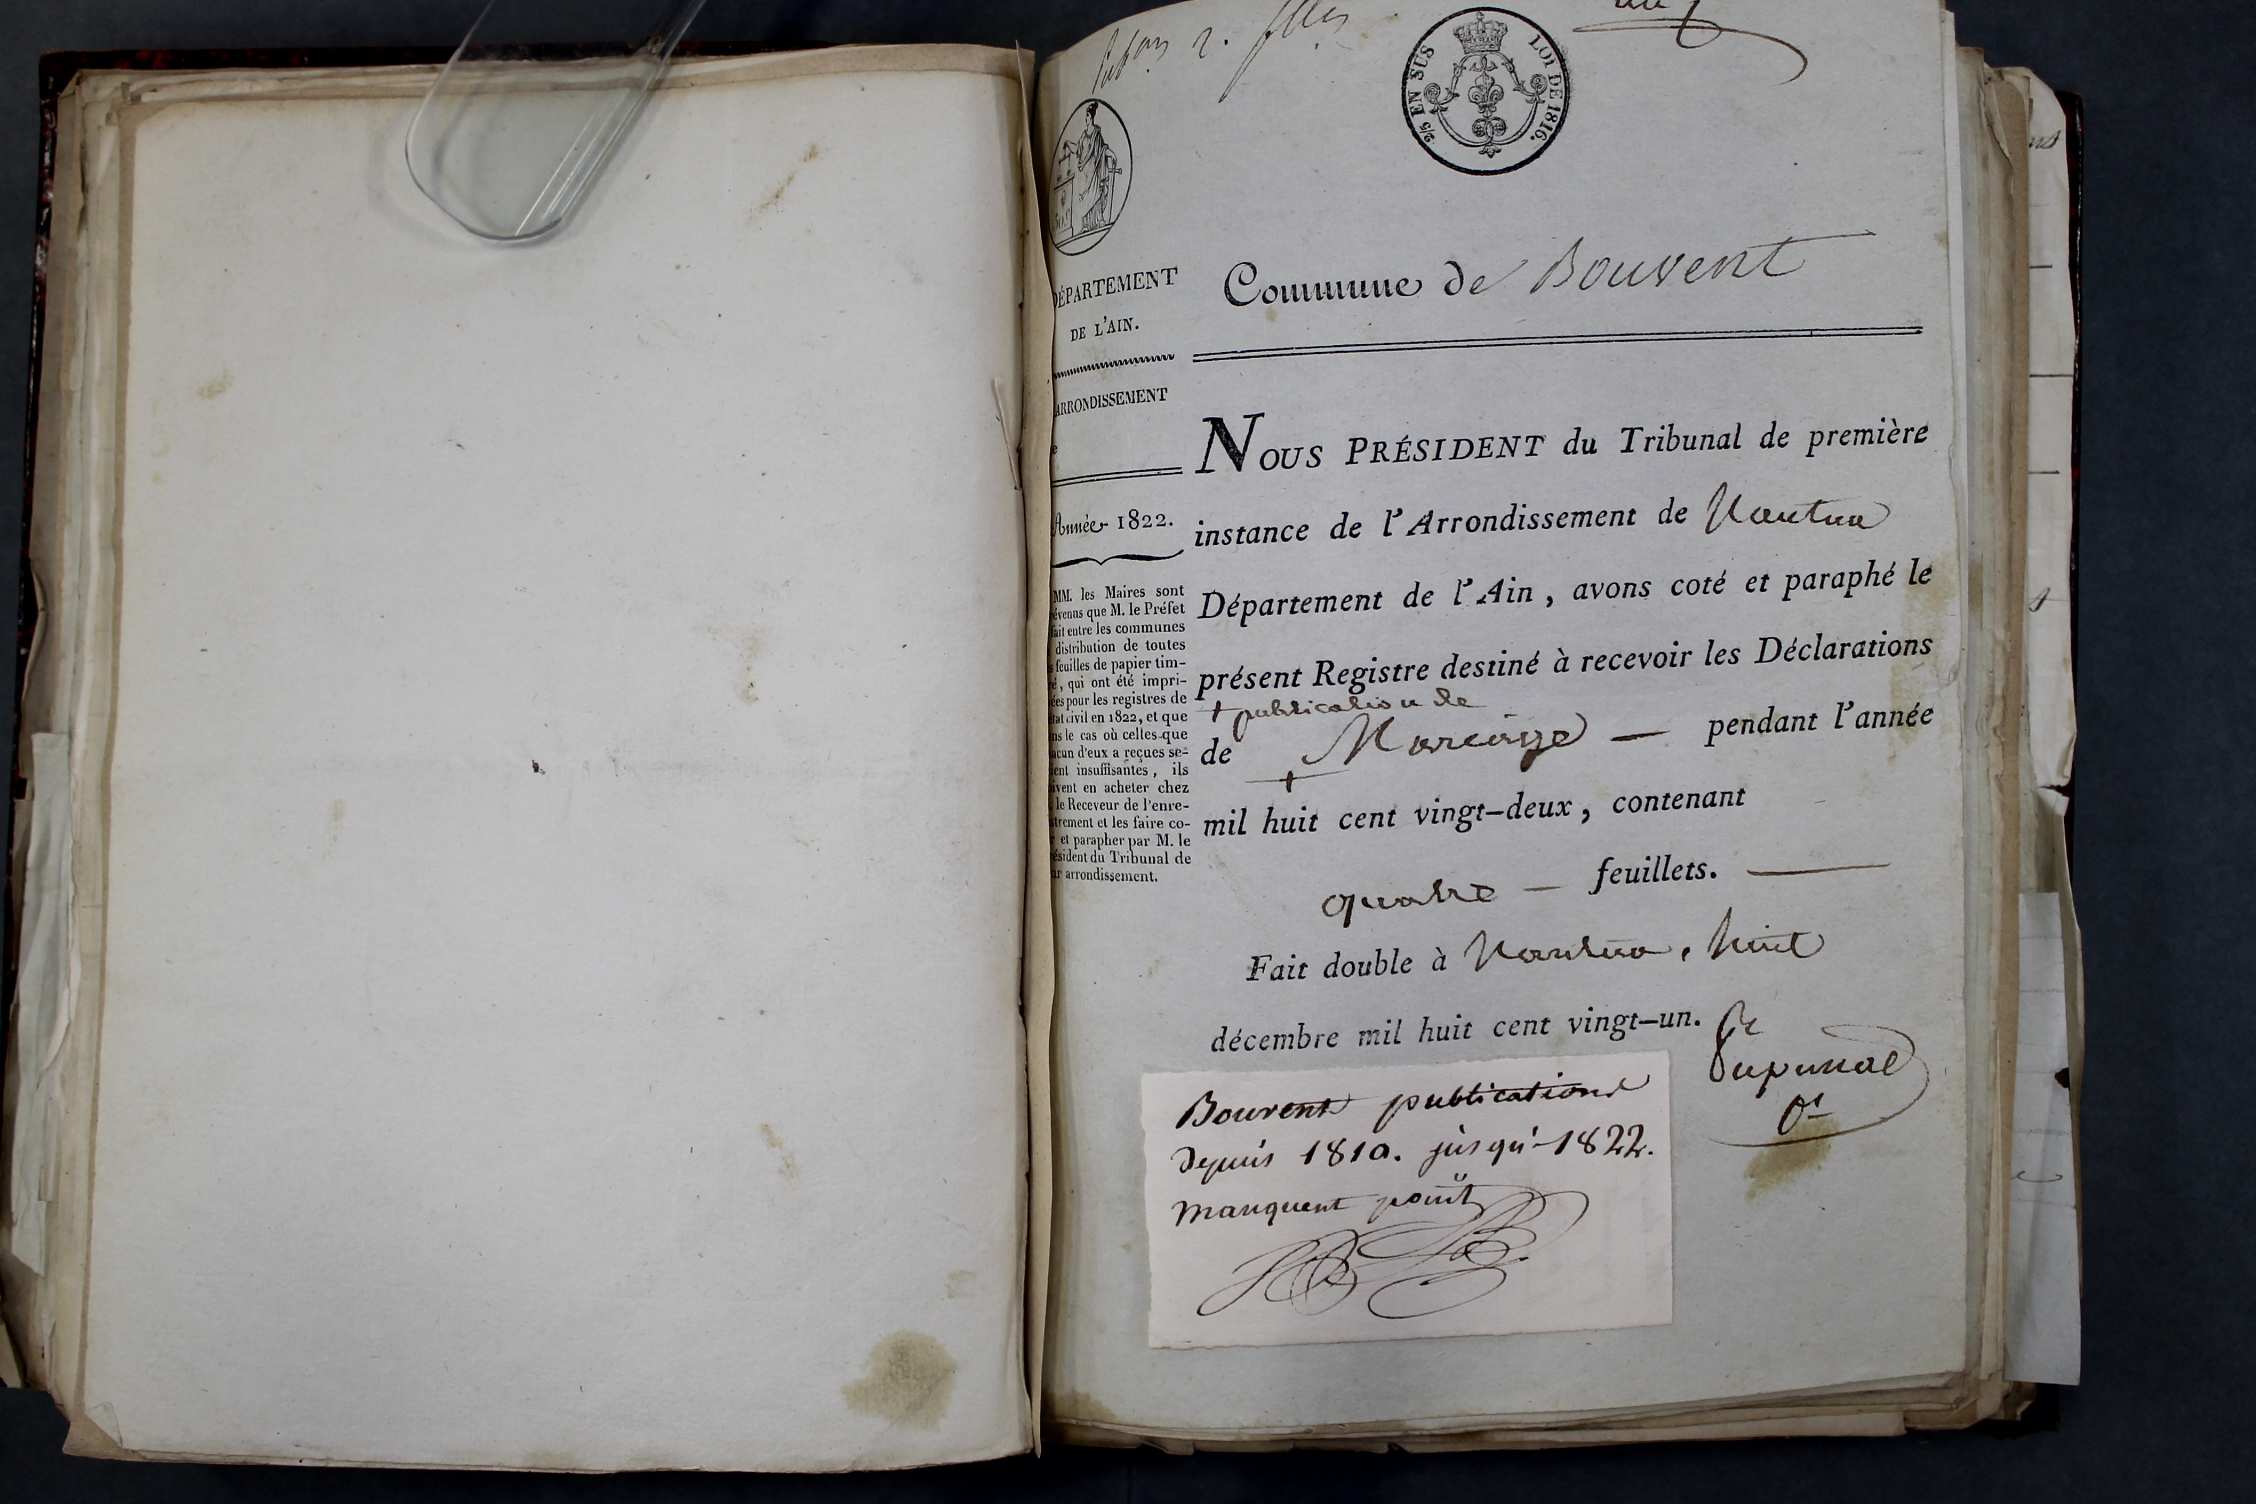 2/5 EN SUS LOI DE 1816.
50.c
DÉPARTEMENT
DE L'AIN.
ARRONDISSEMENT
e
Année 1822.
MM. les Maires sont
évenus que M. le Préfet
fait entre les communes
distribution de toutes
s feuilles de papier tim-
é, qui ont été impri-
ées pour les registres de
état civil en 1822, et que
ns le cas où celles que
acun d'eux a reçues se-
ient insuffisantes, ils
ivent en acheter chez
le Receveur de l'enre-
strement et les faire co-
r et parapher par M. le
ésident du Tribunal de
ur arrondissement.
Commune de Bouvent
NOUS PRÉSIDENT du Tribunal de première
instance de l'Arrondissement de Nantua
Département de l'Ain, avons coté et paraphé le
présent Registre destiné à recevoir les Déclarations
+ publication de
de + Mariage — pendant l'année
mil huit cent vingt-deux, contenant
quatre — feuillets. —
Fait double à Nantua, huit
décembre mil huit cent vingt-un.
Bouvent publications
depuis 1810. jusqu'-1822.
manquent point